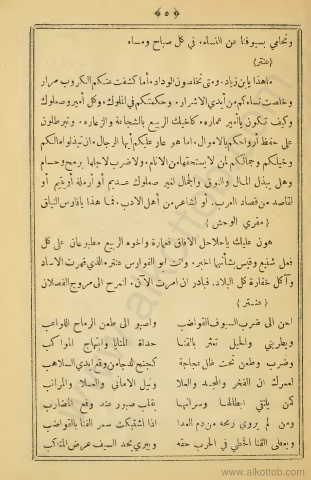 ﴿ ٥ ﴾
ونحامي بسيوفنا عن النساء، في كل صباح ومساء
{عنتر}
ما هذا يا بن زياد. ومتى تخلصون الوداد. أما كشفت عنكم الكروب مرار
وخلصت نساءكم من أيدي الاشرار. وحكمتكم في الملوك. وكل أمير وصعلوك
وكيف تنكون يا أمير عماره. كاخيك الربيع بالشجاعة والزعاره. وتبرطلون
على حفظ أرواحكم بالاموال. أما هو عار عليكم أيها الرجال. ان تبذلوا مالكم
وخيلكم وجمالكم لمن لا يستحقها من الانام. ولا ضرب لاجلها برمح وحسام
وهل يبذل المال والنوق والجمال لغير صعلوك عديم أو أرملة أو يتيم أو
لقاصد من قصاد العرب. أو لشاعر من أهل الادب. فما هذا يا فارس النياق
{مقري الوحش}
هون عليك يا حلاحل الافاق فعمارة واخوه الربيع مطبوعان على كل
فعل شنيع وقيس بشأنهما اخبر. وانت ابو الفوارس عنتر. الذي قهرت الآساد
وآكل خفارة كل البلاد. فبادر ان امرت الآن. لنمرح الى مروج الغصلان
{عنتر}
احن الى ضرب السيوف القواضب واصبو الى طعن الرماح اللواعب
ويطربني والخيل تعثر بالقنا حداة المنايا وابتهاج المواكب
وضرب وطعن تحت ظل عجاجة كجنح الدجا من وقع ايدي السلاهب
لعمرك ان الفخر والمجد والعلا ونيل الاماني والعلا والمراتب
لمن يلتقي ابطالها وسراتها بقلب صبور عند وقع المضارب
ومن لم يروي رمحه من دم العدا اذا اشتبكت سمر القنا بالقواضب
ويعطي القنا الخطي في الحرب حقه ويبري بحد السيف عرض المناكب
www.alkottob.com